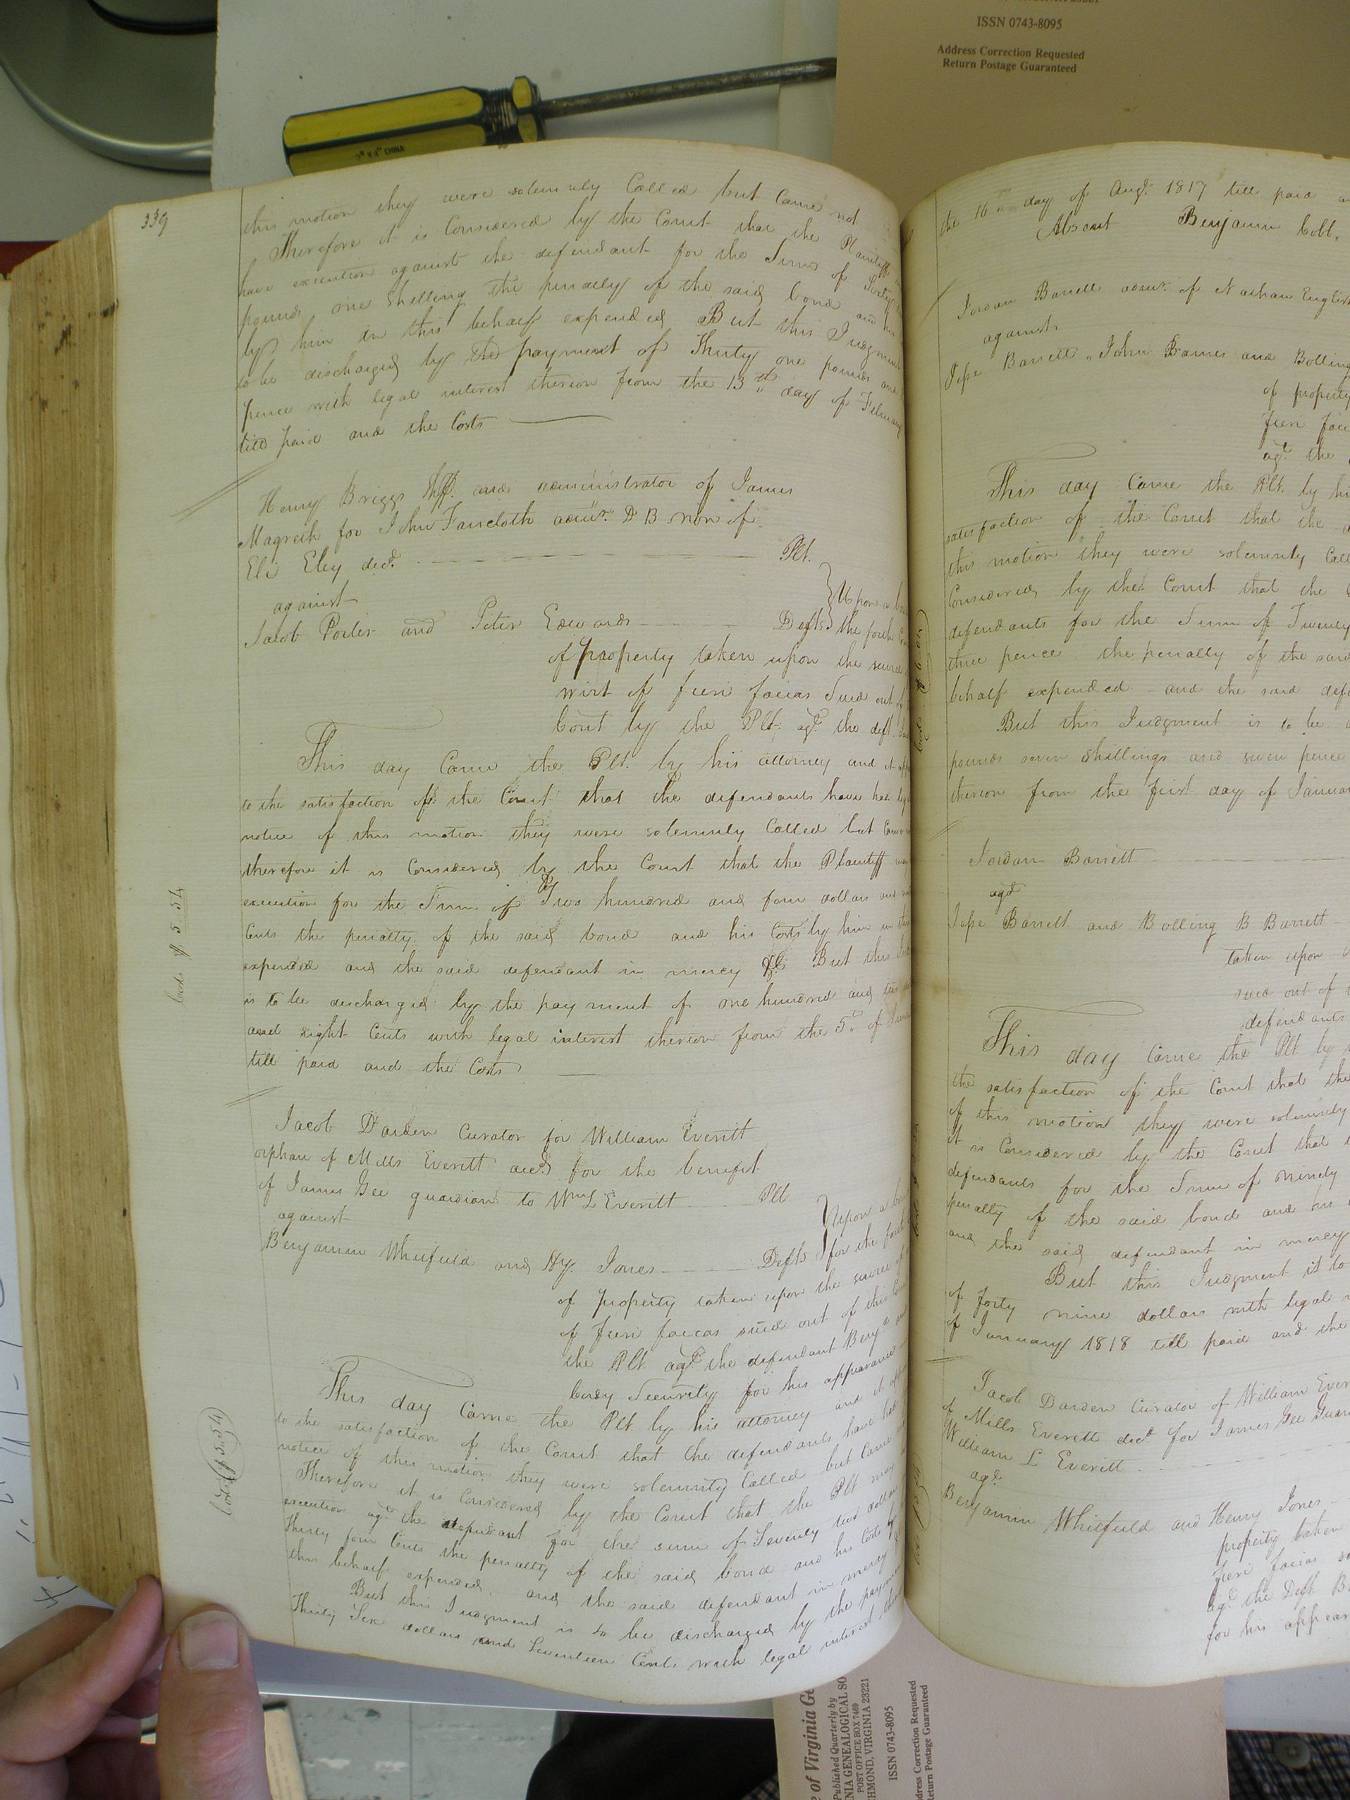 ISSN 0743-8095
Address Correction Requested
Return Postage Guaranteed
CHINA
339
this motion they were solemnly Called but Came not
Therefore it is Considered by the Court that the Plaintiff
have execution against the defendant for the Sum of Sixty
pounds one Shilling the penalty of the said bond and his
by him in this behalf expended But this Judgment
to be discharged by the payment of Thirty one pounds and
pence with legal interest thereon from the 13th day of February
till paid and the Costs
Henry Briggs Shff. and administrator of James
Magreih for John Faircloth admr. D B non of
Eli Eley decd. Plt.
against
Jacob Porter and Peter Edwards Defts
Upon a
the forth
of property taken upon the
writ of fieri facias Sued out of
Court by the Plt. agt. the deft
This day Came the Plt. by his attorney and it
to the satisfaction of the Court that the defendants have had
notice of this motion they were solemnly Called but Came
therefore it is Considered by the Court that the Plaintiff
execution for the Sum of Two hundred and four dollars and
Cents the penalty of the said bond and his Costs by him in this
expended and the said defendant in mercy &c But this
is to be discharged by the payment of one hundred and two
and eight Cents with legal interest thereon from the 5th. of
till paid and the Costs
Jacob Darden Curator for William Everitt
orphan of Mills Everitt decd for the benefit
of James Gee guardian to Wm L Everitt Plt
against
Benjamin Whitfield and Hy. Jones Defts
Upon a
for the forth
of property taken upon the
of fieri facias sued out of this
the Plt agt the defendant Benjn
being Security for his appearance
This day Came the Plt by his attorney and it
to the satisfaction of the Court that the defendants have had
notice of this motion they were solemnly Called but Came
Therefore it is Considered by the Court that the Plt may
execution agt the defendant for the sum of Seventy two dollars
Thirty four Cents the penalty of the said bond and his Costs by
this behalf expended and the said defendant in mercy
But this Judgment is to be discharged by the payment
Thirty Six dollars and Seventeen Cents with legal interest
the 16th day of Augt. 1817 till paid
Absent Benjamin Cobb.
Jordan Barrett admr. of Nathan English
against
Jesse Barrett, John Barnes and Bolling
of property
fieri faci
agt. the
This day Came the Plt. by
satisfaction of the Court that the
this motion they were solemnly Call
Considered by the Court that the
defendants for the Sum of Twenty
three pence the penalty of the said
behalf expended and the said def
But this Judgment is to be
pounds seven Shillings and seven pence
thereon from the first day of Januar
Jordan Barrett
agt
Jesse Barrett and Bolling B Barrett
taken upon
sued out of
defendants
This day Came the Plt by
the satisfaction of the Court that the
of this motion they were solemnly
it is Considered by the Court that
defendants for the Sum of ninety
penalty of the said bond and
and the said defendant in mercy
But this Judgment is to
of forty nine dollars with legal
of January 1818 till paid and the
Jacob Darden Curator of William Ever
of Mills Everitt decd. for James Gee Guar
William L Everitt
agt.
Benjamin Whitfield and Henry Jones
property taken
fieri facias
agt the Deft B
for his appear
of Virginia Ge
Published Quarterly by
NIA GENEALOGICAL SO
POST OFFICE BOX 7469
HMOND, VIRGINIA 23221
ISSN 0743-8095
ddress Correction Requested
Return Postage Guaranteed